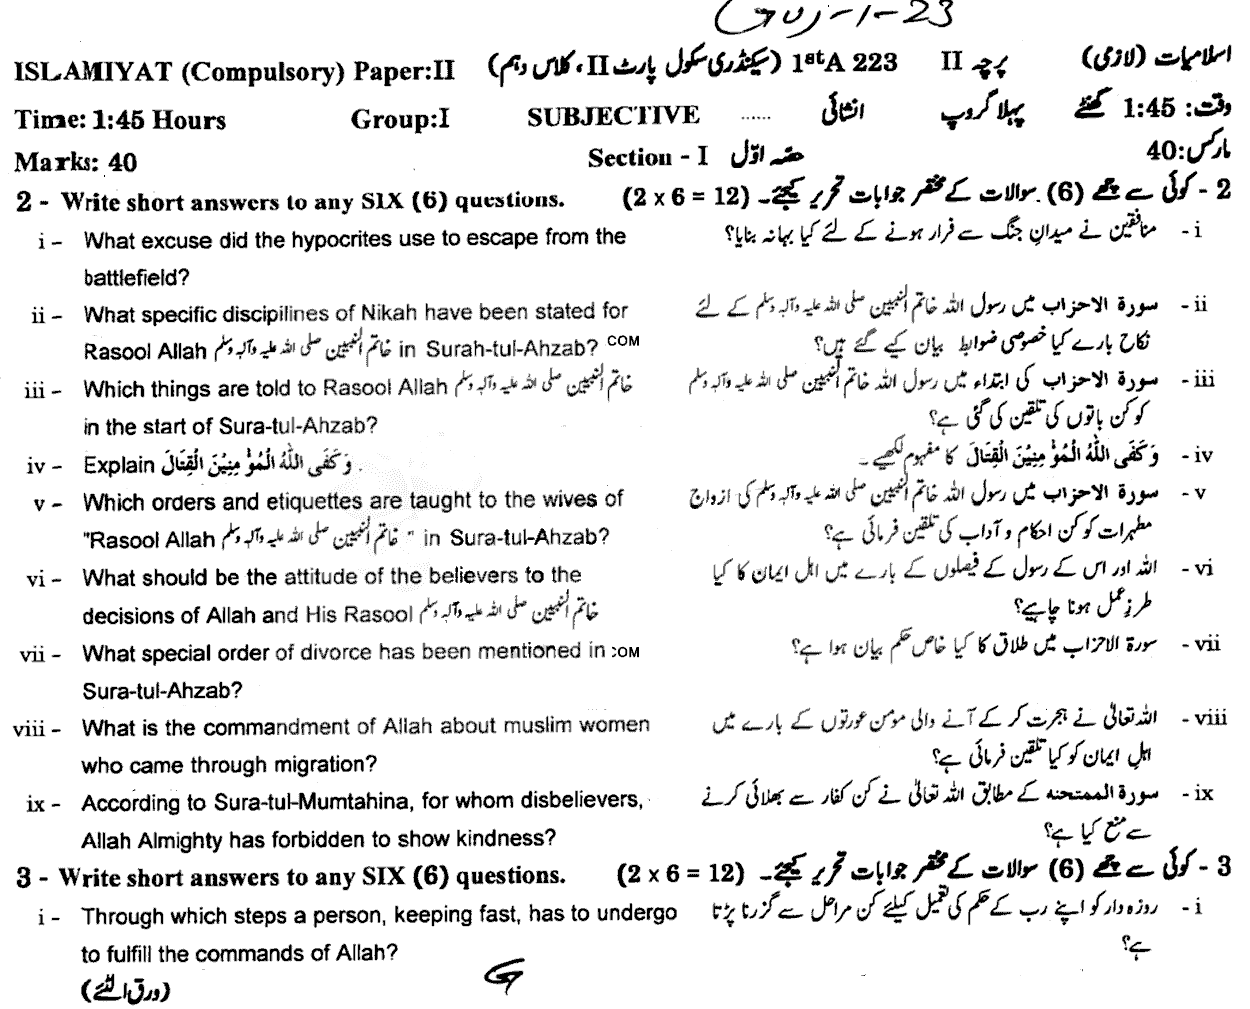 Guj-1-23
ISLAMIYAT (Compulsory) Paper:II (سیکنڈری سکول پارٹ II، کلاس دہم) 1stA 223 پرچہ II اسلامیات (لازمی)
Time: 1:45 Hours Group:I SUBJECTIVE ...... انشائی پہلا گروپ وقت: 1:45 گھنٹے
Marks: 40 Section - I حصہ اوّل مارکس:40
2 - Write short answers to any SIX (6) questions. (2 x 6 = 12) 2 - کوئی سے چھے (6) سوالات کے مختصر جوابات تحریر کیجئے۔
i – What excuse did the hypocrites use to escape from the i - منافقین نے میدانِ جنگ سے فرار ہونے کے لئے کیا بہانہ بنایا؟
battlefield?
ii – What specific discipilines of Nikah have been stated for ii - سورۃ الاحزاب میں رسول اللہ خاتم النبیین صلی اللہ علیہ وآلہ وسلم کے لئے
Rasool Allah خاتم النبیین صلی اللہ علیہ وآلہ وسلم in Surah-tul-Ahzab? COM نکاح بارے کیا خصوصی ضوابط بیان کیے گئے ہیں؟
iii – Which things are told to Rasool Allah خاتم النبیین صلی اللہ علیہ وآلہ وسلم iii - سورۃ الاحزاب کی ابتداء میں رسول اللہ خاتم النبیین صلی اللہ علیہ وآلہ وسلم
in the start of Sura-tul-Ahzab? کو کن باتوں کی تلقین کی گئی ہے؟
iv – Explain وَكَفَى اللّٰهُ الْمُؤْمِنِيْنَ الْقِتَالَ . iv - وَكَفَى اللّٰهُ الْمُؤْمِنِيْنَ الْقِتَالَ کا مفہوم لکھیے۔
v – Which orders and etiquettes are taught to the wives of v - سورۃ الاحزاب میں رسول اللہ خاتم النبیین صلی اللہ علیہ وآلہ وسلم کی ازواج
"Rasool Allah خاتم النبیین صلی اللہ علیہ وآلہ وسلم " in Sura-tul-Ahzab? مطہرات کو کن احکام و آداب کی تلقین فرمائی ہے؟
vi – What should be the attitude of the believers to the vi - اللہ اور اس کے رسول کے فیصلوں کے بارے میں اہل ایمان کا کیا
decisions of Allah and His Rasool خاتم النبیین صلی اللہ علیہ وآلہ وسلم طرزِ عمل ہونا چاہیے؟
vii – What special order of divorce has been mentioned in :OM vii - سورۃ الاحزاب میں طلاق کا کیا خاص حکم بیان ہوا ہے؟
Sura-tul-Ahzab?
viii – What is the commandment of Allah about muslim women viii - اللہ تعالیٰ نے ہجرت کر کے آنے والی مؤمن عورتوں کے بارے میں
who came through migration? اہلِ ایمان کو کیا تلقین فرمائی ہے؟
ix – According to Sura-tul-Mumtahina, for whom disbelievers, ix - سورۃ الممتحنہ کے مطابق اللہ تعالیٰ نے کن کفار سے بھلائی کرنے
Allah Almighty has forbidden to show kindness? سے منع کیا ہے؟
3 - Write short answers to any SIX (6) questions. (2 x 6 = 12) 3 - کوئی سے چھے (6) سوالات کے مختصر جوابات تحریر کیجئے۔
i – Through which steps a person, keeping fast, has to undergo i - روزہ دار کو اپنے رب کے حکم کی تعمیل کیلئے کن مراحل سے گزرنا پڑتا
to fulfill the commands of Allah? ہے؟
(ورق الٹئے)